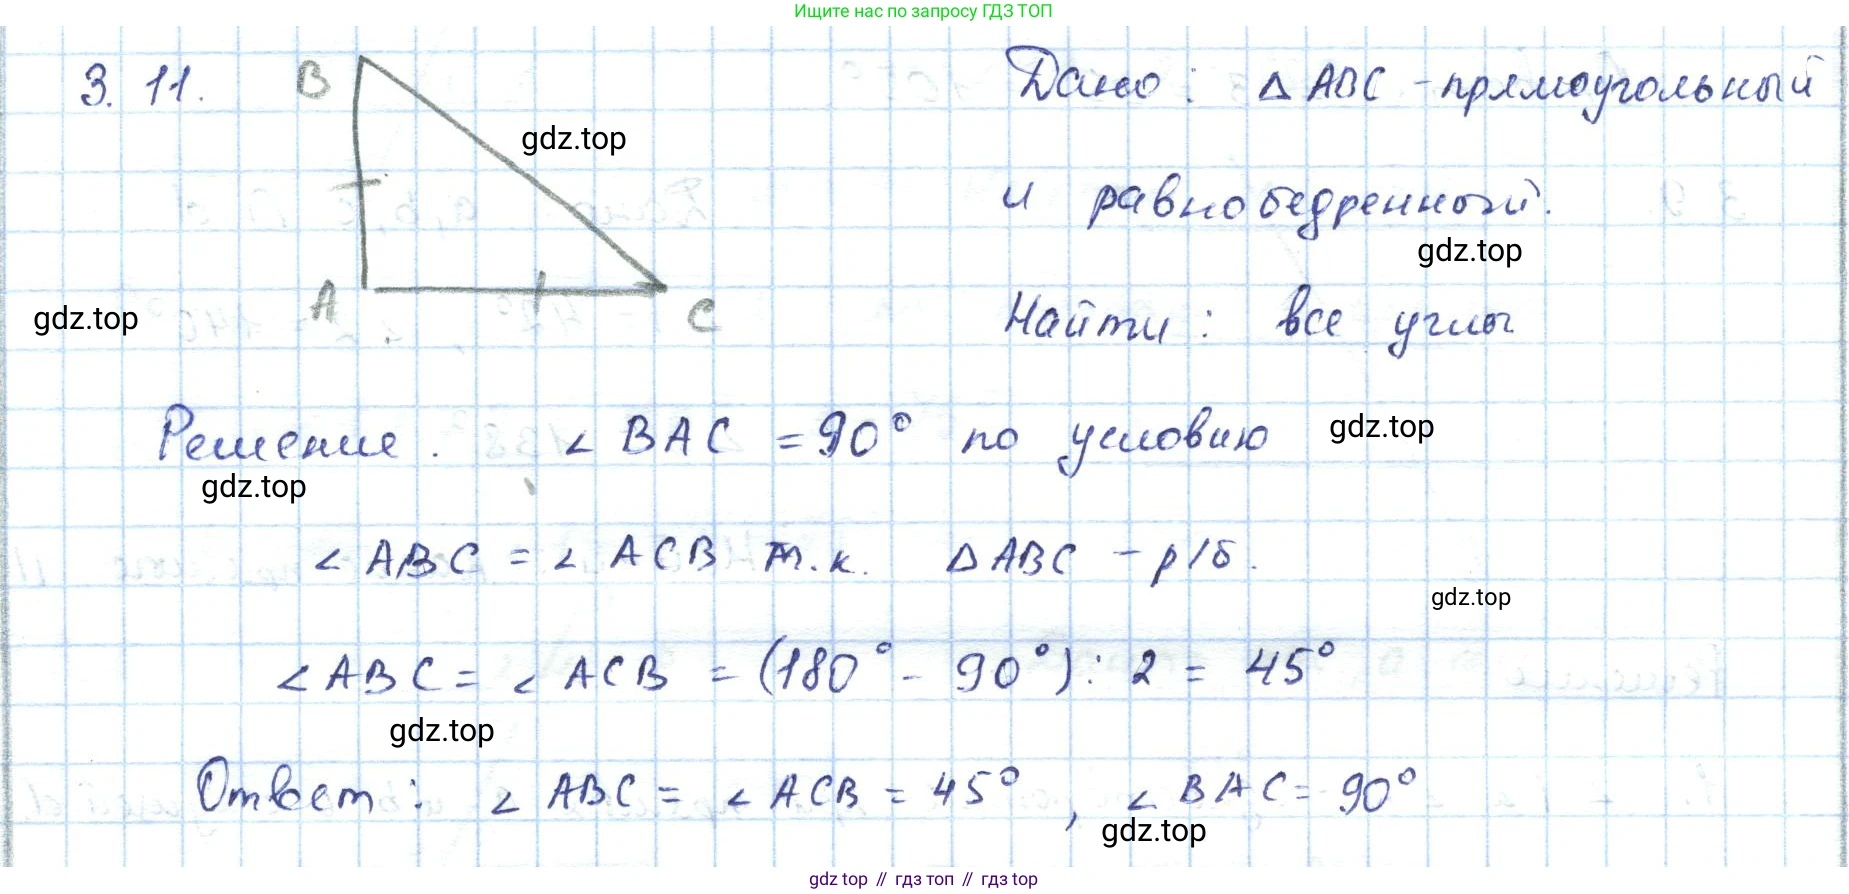 Ищите нас по запросу ГДЗ ТОП
3.11.
B
A
C
gdz.top
gdz.top
Дано: △ ABC - прямоугольный
и равнобедренный.
gdz.top
Найти: все углы
Решение. ∠ BAC = 90° по условию
gdz.top
gdz.top
∠ ABC = ∠ ACB т.к. △ ABC - р/б.
gdz.top
∠ ABC = ∠ ACB = (180° - 90°) : 2 = 45°
gdz.top
Ответ: ∠ ABC = ∠ ACB = 45°, ∠ BAC = 90°
gdz.top
gdz top // гдз топ // гдз top